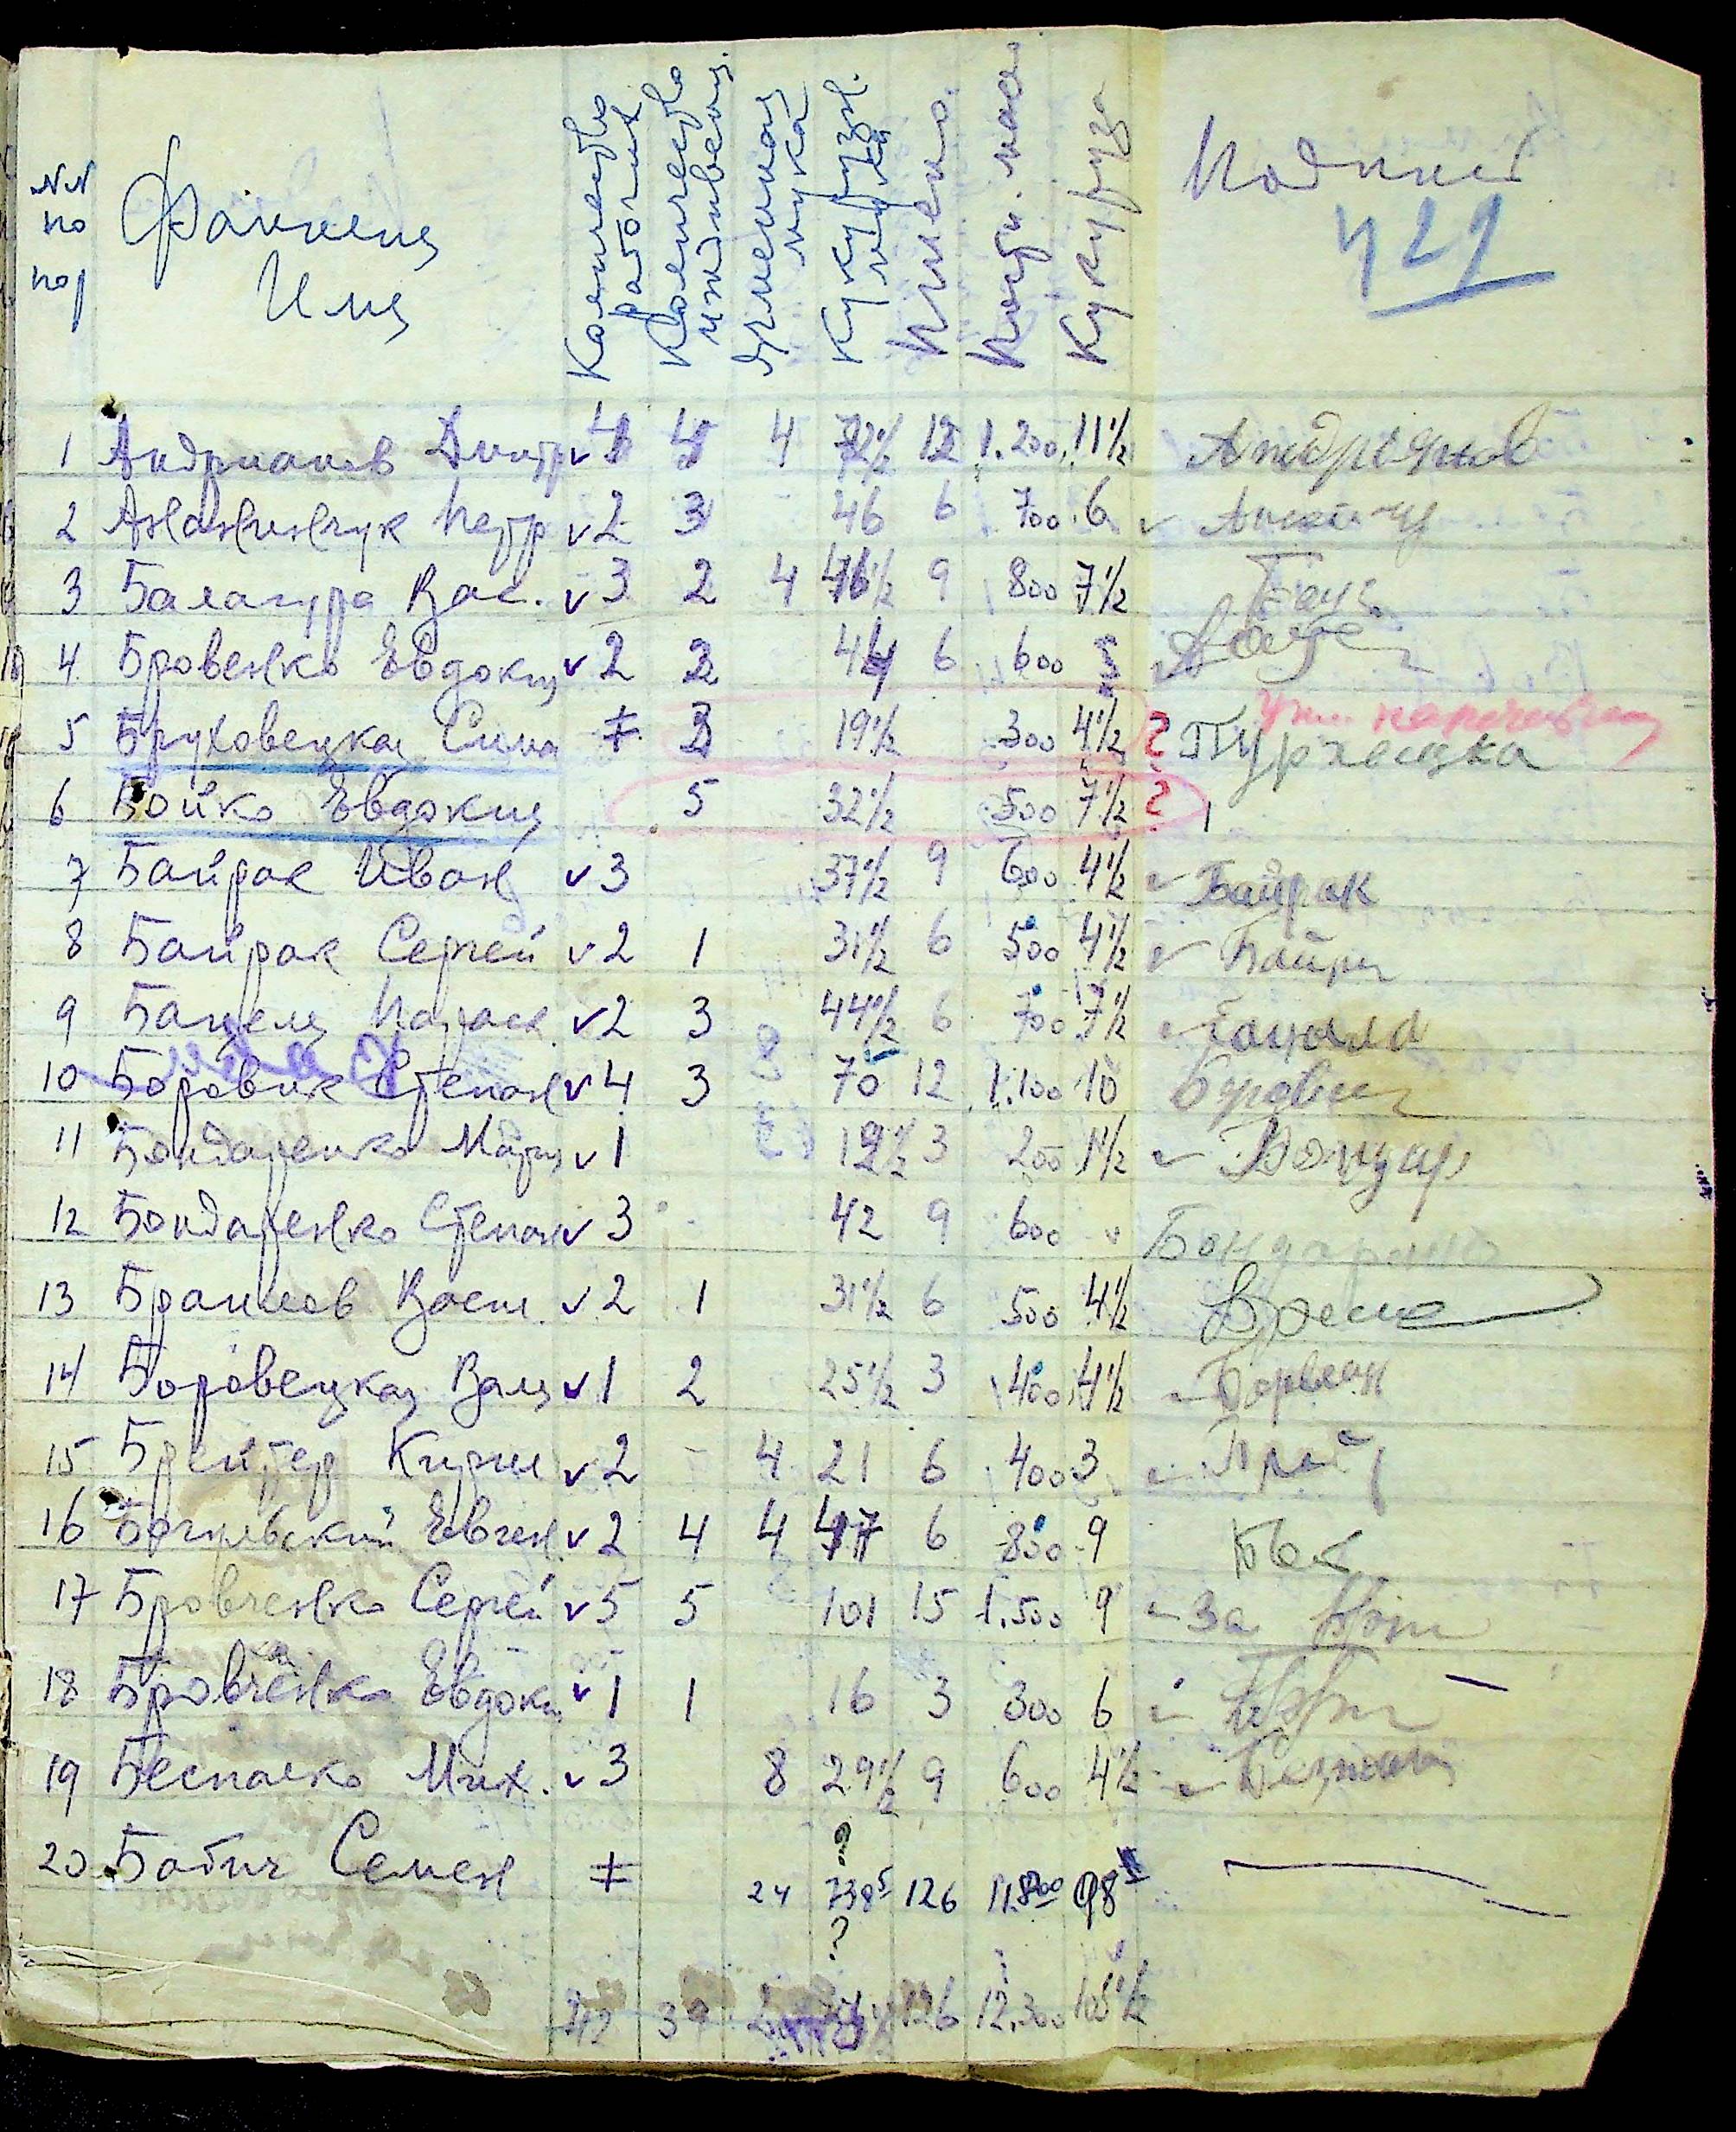 NN по пор
Фамилия Имя
Количество рабочих
Количество иждивенц.
Ячменная мука
Кукурузн. мука
Пшено
Кукуруза
Подпись
421
1 Андрианов Дмитр v 4 4 4 72½ 12 1.200 11½
2 Ананинчук Петр v 2 3 46 6 700 6 v
3 Балагура Вас. v 3 2 4 46½ 9 800 7½
4 Бровенко Евдокия v 2 2 44 6 600
5 Бруховецкая Сима ≠ 3 19½ 300 4½ ?
6 Бойко Евдокия 5 32½ 500 7½ ?
7 Байрак Иван v 3 37½ 9 600 4½ v Байрак
8 Байрак Сергей v 2 1 31½ 6 500 4½ v Байрк
9 Бацеля Параск v 2 3 44½ 6 700 7½ v Бацала
10 Боровик Степан v 4 3 70 12 1.100 10
11 Бондаренко Мария v 1 12½ 3 200 1½ v
12 Бондаренко Степан v 3 42 9 600 v Бондаренко
13 Браилов Васил. v 2 1 31½ 6 500 4½
14 Боровецкая Валя v 1 2 25½ 3 400 4½
15 Брейтер Кирил v 2 - 4 21 6 400 3
16 Евген. v 2 4 4 47 6 800 9
17 Бровченко Сергей v 5 5 101 15 1.500 9 За
18 Бровченко Евдоки v 1 1 16 3 300 6
19 Беспалко Мих. v 3 8 29½ 9 600 4½
20 Бабич Семен ≠
?
24 738⁵ 126 11.800 98
?
42 39 126 12.300 105½